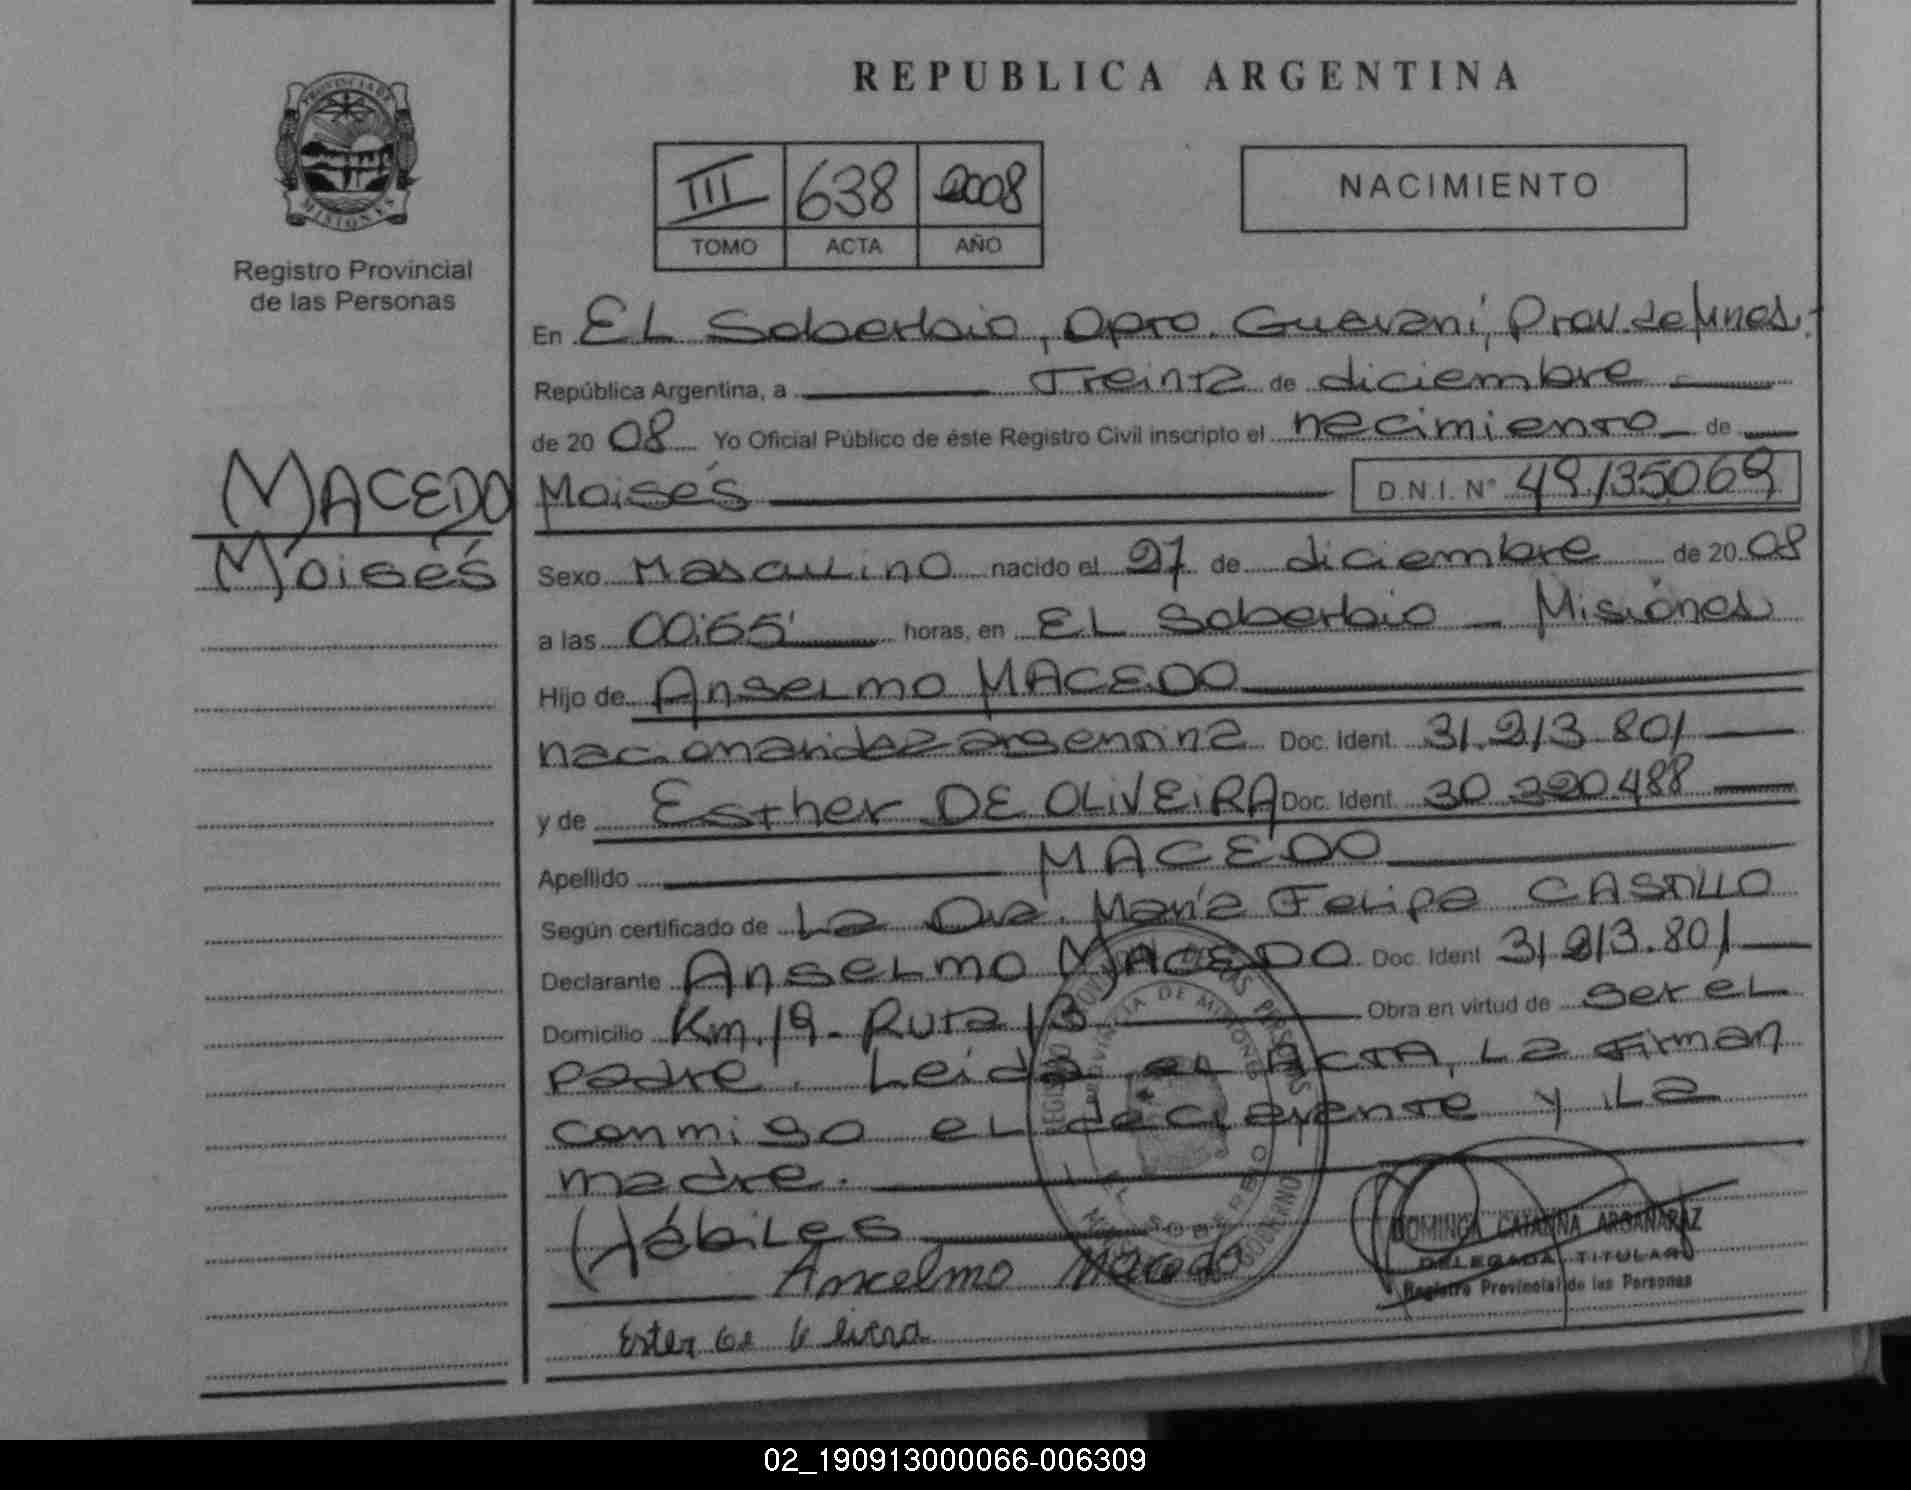 REPUBLICA ARGENTINA
PROVINCIA DE
MISIONES
Registro Provincial
de las Personas
III 638 2008
TOMO ACTA AÑO
NACIMIENTO
En EL Soberbio, Dpto. Guarani, Prov. de Mnes.
República Argentina, a Treinta de diciembre
de 20 08 Yo Oficial Público de éste Registro Civil inscripto el nacimiento de
MACEDO
Moisés
Moisés D.N.I. N° 49.135.069
Sexo Masculino nacido el 27 de diciembre de 20 08
a las horas, en EL Soberbio - Misiones
Hijo de Anselmo MACEDO
argentina Doc. Ident. 31.213.801
y de Esther DE OLiVEiRA Doc. Ident. 30.320.488
Apellido MACEDO
Según certificado de La Dra. María Felipa CASTILLO
Declarante Anselmo MACEDO Doc. Ident 31.213.801
Domicilio Km. 19 - Ruta 13 Obra en virtud de ser el
padre. Leida el ACTA, La Firman
conmigo el declarante y La
madre.
Hábiles
Ancelmo Macedo
Ester
DOMINGA CATALINA ARGAÑARAZ
DELEGADA TITULAR
Registro Provincial de las Personas
PROVINCIA DE MISIONES
EL SOBERBIO
02_190913000066-006309